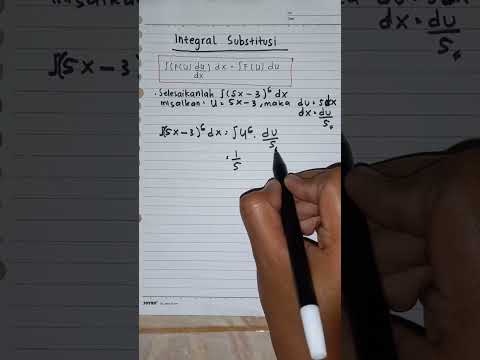 Integral Substitusi
∫(F(U) du/dx) dx = ∫F(U) du
· Selesaikanlah ∫(5x-3)⁶ dx
misalkan : U = 5x-3, maka du = 5dx
dx = du/5
∫(5x-3)⁶ dx = ∫U⁶ . du/5
= 1/5